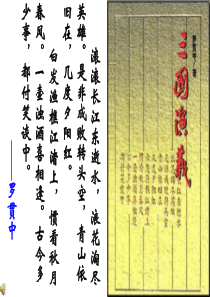 滚滚长江东逝水，浪花淘尽
英雄。是非成败转头空，青山依
旧在，几度夕阳红。
白发渔樵江渚上，惯看秋月
春风。一壶浊酒喜相逢。古今多
少事，都付笑谈中。
——罗贯中
三國演義